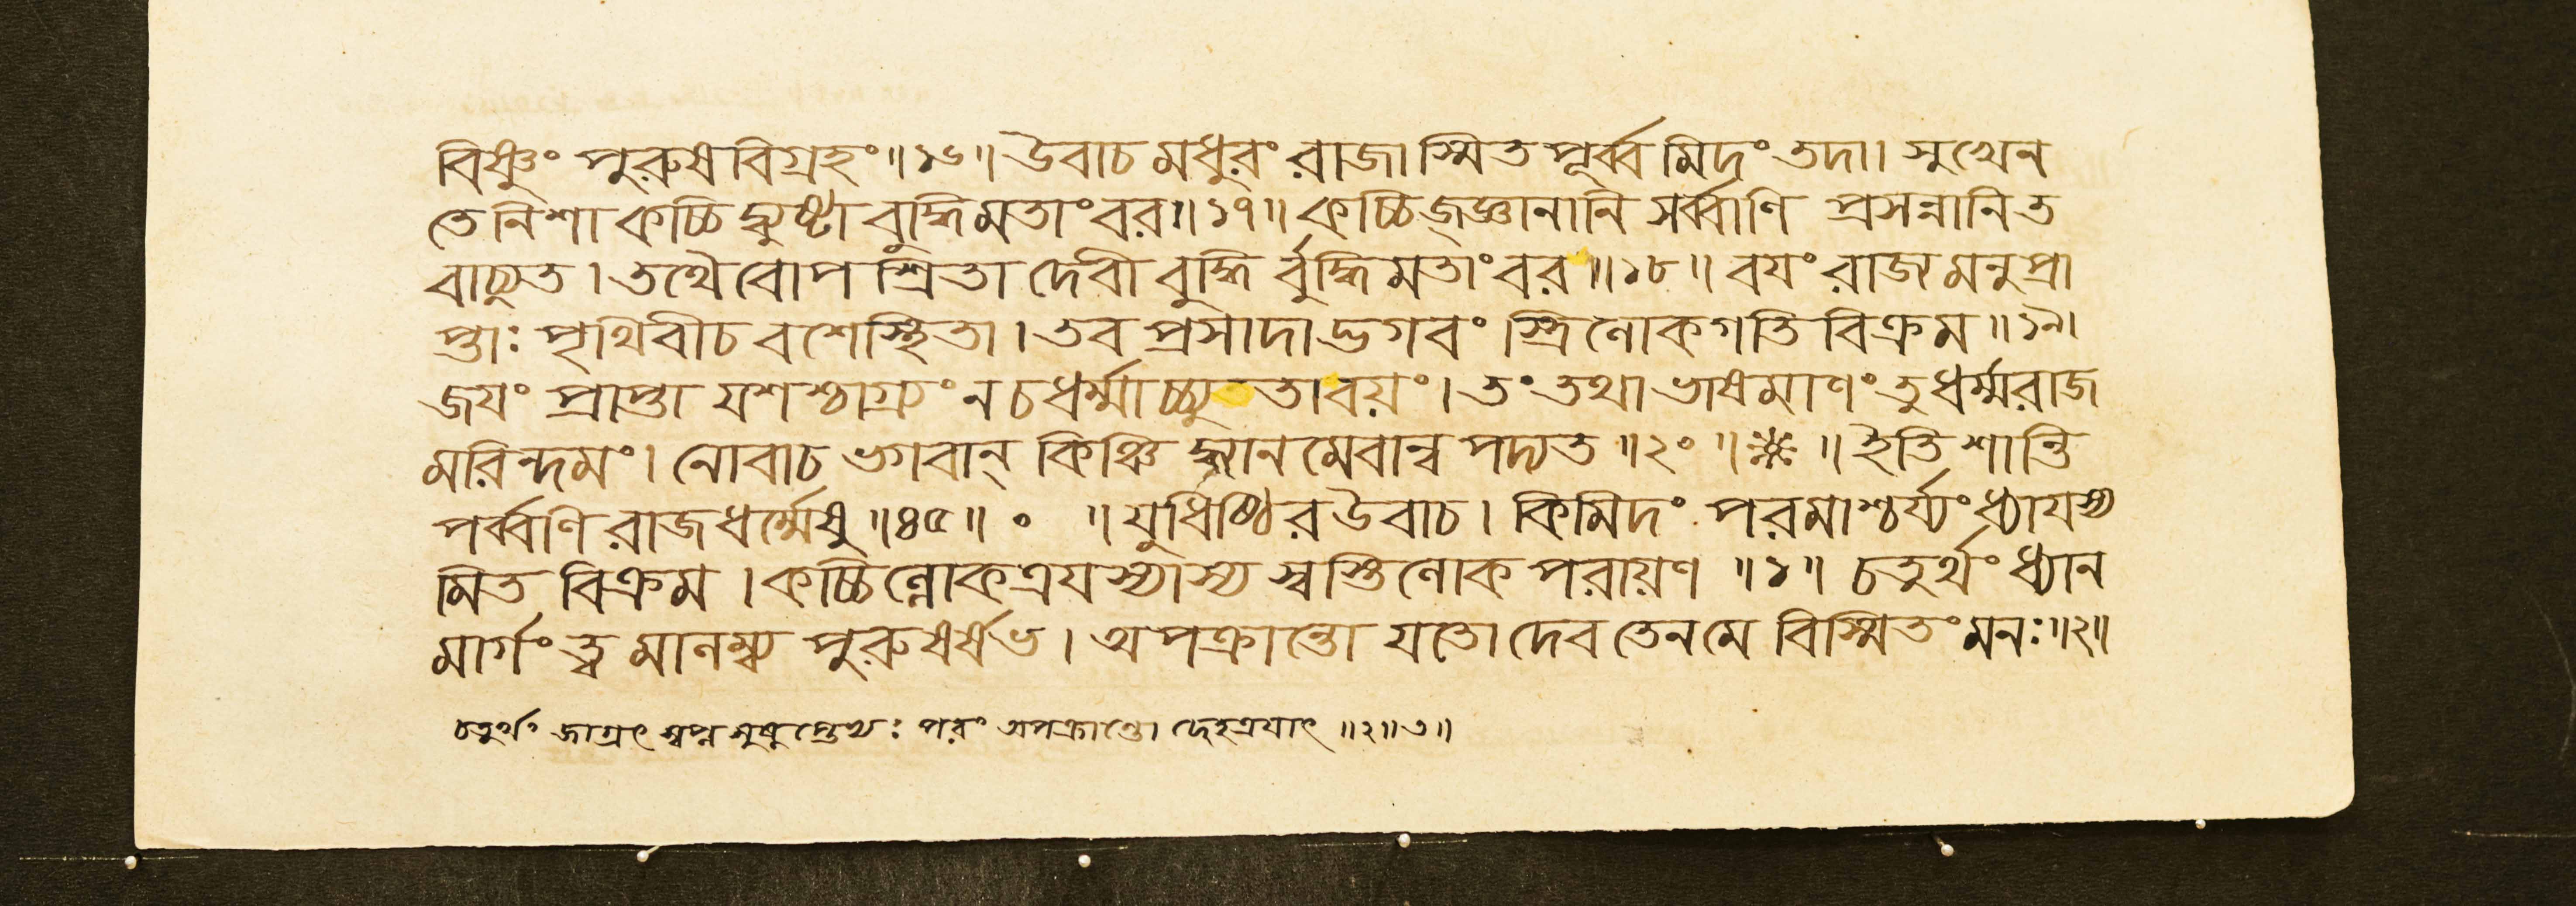 বিষ্ণুং পুরুষবিগ্রহং ॥১৬॥ উবাচ মধুরং রাজা স্মিতপূর্ব্বমিদং তদা। সুখেন
তে নিশা কচ্চিদ্ব্যুষ্টা বুদ্ধিমতাংবর ॥১৭॥ কচ্চিজ্জ্ঞানানি সর্ব্বাণি প্রসন্নানি ত
বাচ্যুত। তথৈবোপশ্রিতা দেবী বুদ্ধির্বুদ্ধিমতাংবর ॥১৮॥ বযং রাজ্যমনুপ্রা
প্তাঃ পৃথিবীচ বশেস্থিতা। তব প্রসাদাদ্ভগবং স্ত্রিলোকগতিবিক্রম ॥১৯।
জযং প্রাপ্তা যশশ্চাগ্র্যং নচ ধর্ম্মাচ্চ্যুতাবয়ং। তং তথা ভাষমাণং তু ধর্ম্মরাজ
মরিন্দমং। নোবাচ ভগবান্ কিঞ্চিদ্ধ্যানমেবান্বপদ্যত ॥২০॥ ইতি শান্তি
পর্ব্বণি রাজধর্ম্মেষু ॥৪৫॥ ০ ॥ যুধিষ্ঠির উবাচ। কিমিদং পরমাশ্চর্য্যং ধ্যাযস্য
মিতবিক্রম। কচ্চিল্লোকত্রযস্যাস্য স্বস্তি লোকপরায়ণ ॥১॥ চতুর্থং ধ্যান
মার্গং ত্বমালম্ব্য পুরুষর্ষভ। অপক্রান্তো যতো দেব তেন মে বিস্মিতং মনঃ ॥২॥
চতুর্থং জাগ্রৎ স্বপ্নসুষুপ্তেভ্যঃ পরং অপক্রান্তো দেহত্রযাৎ ॥২॥৩॥